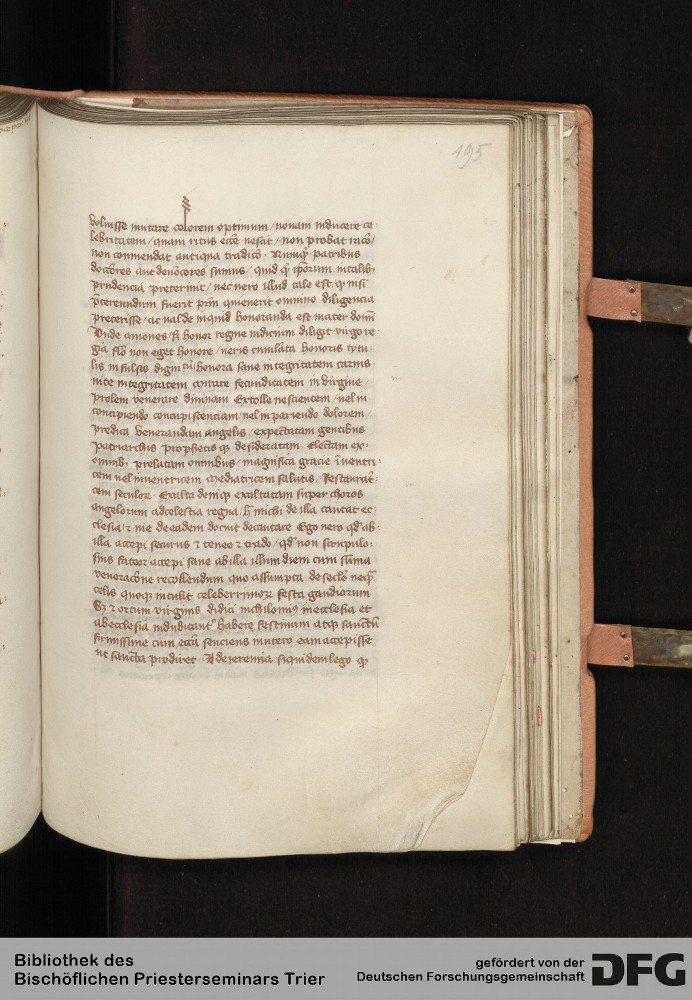 195
voluisse mutare colorem optimum / nouam inducere ce
lebritatem / quam ritus eccẽ nescit / non probat racõ /
non commendat antiqua tradicõ · Nunquid patribus
doctiores aut deuociores sumus /
prudencia preteriuit / nec vero illud tale est / qđ nisi
p̃tereundum fuerit
preterisse / at valde inquid honoranda est mater domĩ
Bñde amones / sꝫ honor regine iudicium diligit virgo re
gia falso non eget honore / veris cumulata honoris tytu
lis infulis dignitatũ honora sane integritatem carnis
vite integritatem
prolem venerare diuinam Extolle nescientem / vel in
concipiendo concupiscenciam / vel in pariendo dolorem /
predica venerandam angelis / expectatam gentibus
patriarchis prophetis qꝫ desideratam Electam ex
omnibꝫ prelatam omnibus / magnifica gracie inuentri
cem vel inuentricem mediatricem salutis Restauratͥ
cem seculoꝝ Exalta deniqꝫ exaltatam super choros
angelorum ad celestia regna / h̃ michi de illa cantat ec
clesia / ⁊ me de eadem docuit decantare Ego vero qđ ab
illa accepi securus ⁊ teneo ⁊ trado / qđ non scrupulo
sius fateor accepi sane ab illa illum diem cum sũma
veneracõne recollendum quo assumpta de seclõ neqͫ
celis quoqꝫ intulit celeberrimoꝝ festa gaudiorum
Sꝫ ⁊ ortum virginis didici nichilominꝰ in ecclesia et
ab ecclesia indubitantͤ habere festiuum atqꝫ sanctũ
firmissime cum eccã senciens in vtero eam accepisse
vt sancta prodiret · Et de ieremia siquidem lego qđ
Bibliothek des
Bischöflichen Priesterseminars Trier
gefördert von der
Deutschen Forschungsgemeinschaft
DFG